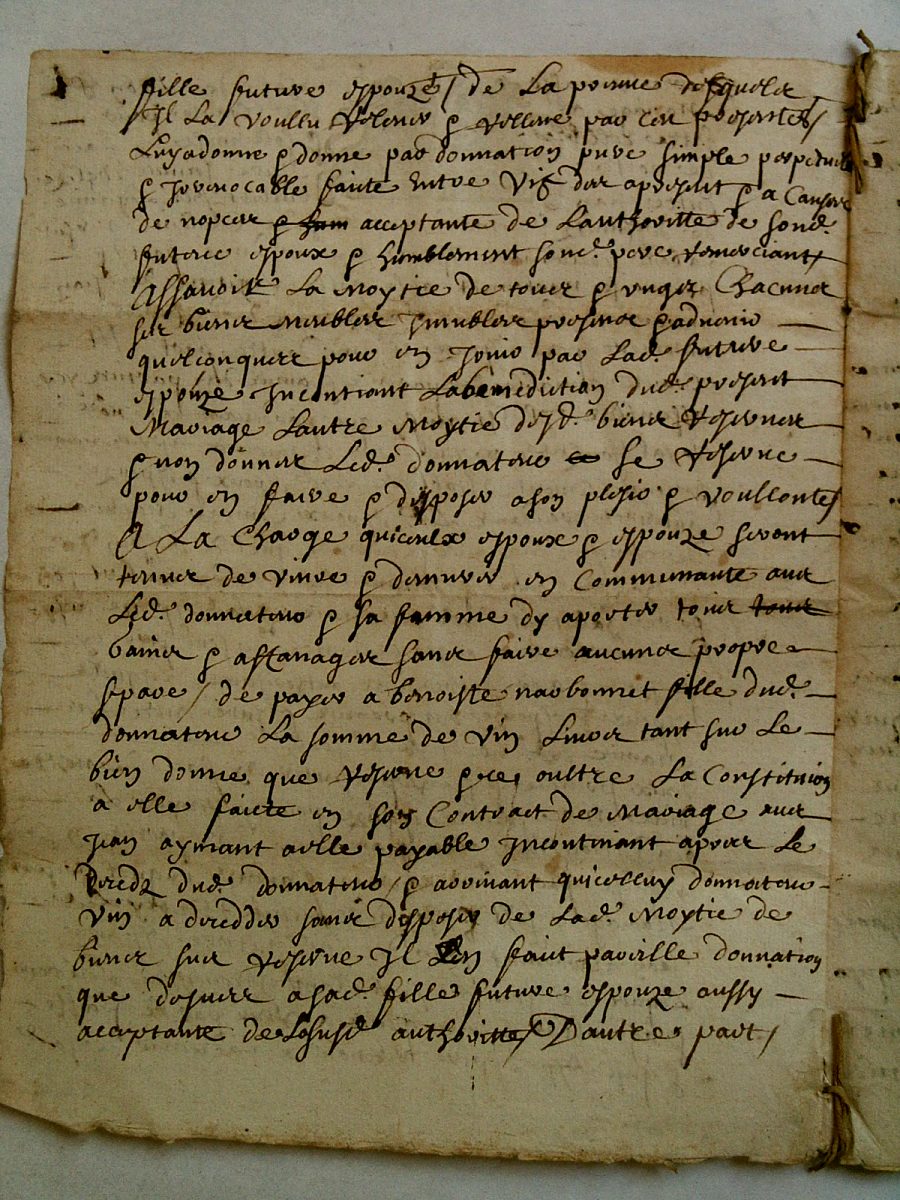 fille future espouze / de la peinne desquelz
Il la voullu rellever & relleve par ces presentes /
Luy a donne & donne par donnation pure simple perpetuelle
& Irrevocable faite entre vifz des apresent & a cause
de nopces acceptante de lauthoritte de sond.
futeur espoux & humblement sond. pere remerciant /
Assavoir La Moytie de tous & ungs Chacungs
ses biens Meubles Inmubles presens & advenir
quelconques pour en Jouir par Lad. future
espouze Incontinant Labenediction dud. present
Mariage Lautre Moytie desd. biens reservee
& non donnee Led. donnateur se reserve
pour en faire & disposer a son plesir & voullonte /
A La Charge quiceulx espoux & espouze seront
tenus de vivre & demurer en Communante avec
Led. donnateur & sa famme dy aporter tous
gains & astanages sans faire aucungs propre
separe / de payer a benoiste narbonnet fille dud.
donnateur La somme de vin Livres tant sur Le
bien donne que reserve & ce oultre La Constitution
a elle faicte en son Contract de Mariage avec
Jean aymant a elle payable Incontinant apres Le
decedz dud. donnateur / & advenant quicelluy donnateur
vin a decedder sans disposer de Lad. Moytie de
biens sus reserve Il en fait pareille donnation
que dessus a sad. fille future espouze aussy
acceptante de Lasusd. authoritte / Dautre part /